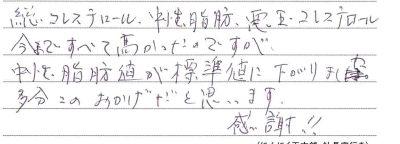 総コレステロール、中性脂肪、悪玉コレステロール
今まですべて高かったのですが、
中性脂肪値が標準値に下がりました。
多分このおかげだと思います。
感謝!!